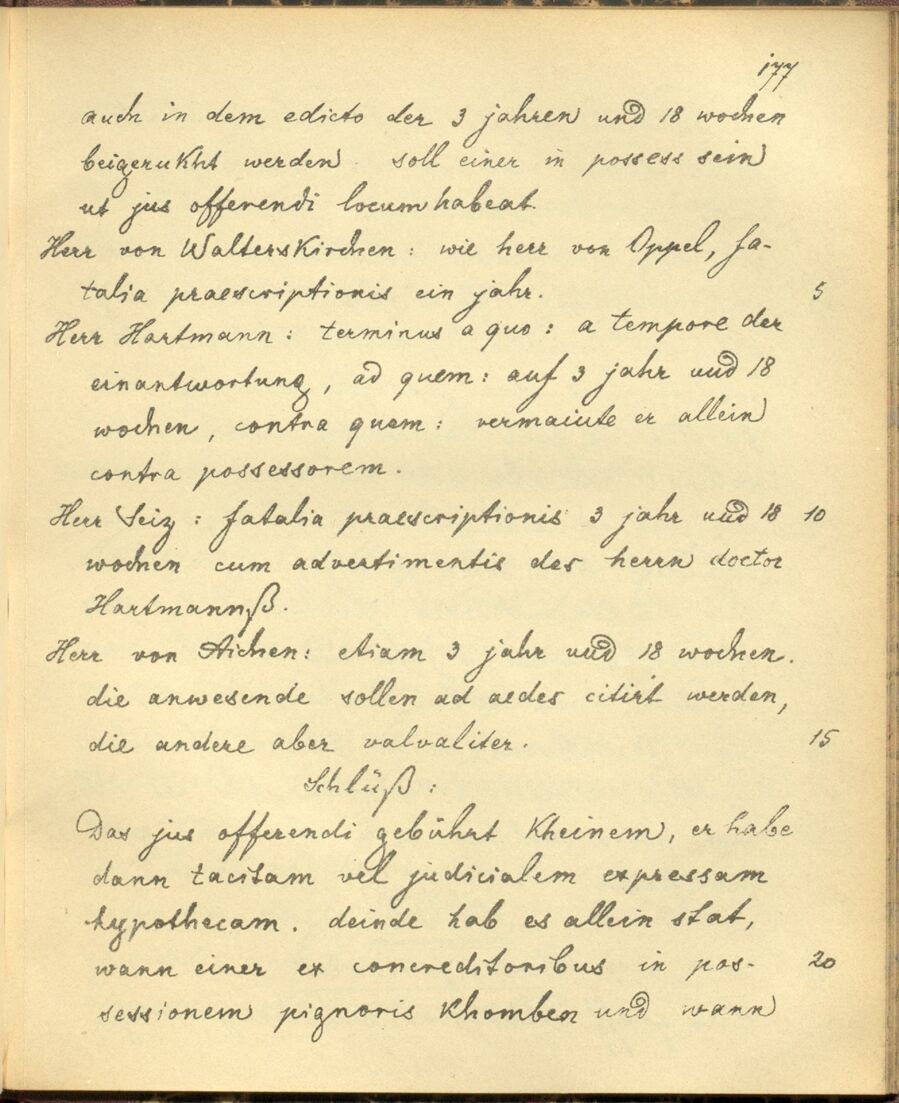 177
auch in dem edicto der 3 jahren und 18 wochen
beigerukht werden. soll einer in possess sein
ut jus offerendi locum habeat.
Herr von Walterskirchen: wie herr von Oppel, fa-
talia praescriptionis ein jahr. 5
Herr Hartmann: terminus a quo: a tempore der
einantwortung, ad quem: auf 3 jahr und 18
wochen, contra quem: vermainte er allein
contra possessorem.
Herr Seiz: fatalia praescriptionis 3 jahr und 18 10
wochen cum advertimentis des herrn doctor
Hartmannß.
Herr von Aichen: etiam 3 jahr und 18 wochen.
die anwesende sollen ad aedes citirt werden,
die andere aber valvaliter. 15
Schlüß:
Das jus offerendi gebührt kheinem, er habe
dann tacitam vel judicialem expressam
hypothecam. deinde hab es allein stat,
wann einer ex concreditoribus in pos- 20
sessionem pignoris khomben und wann